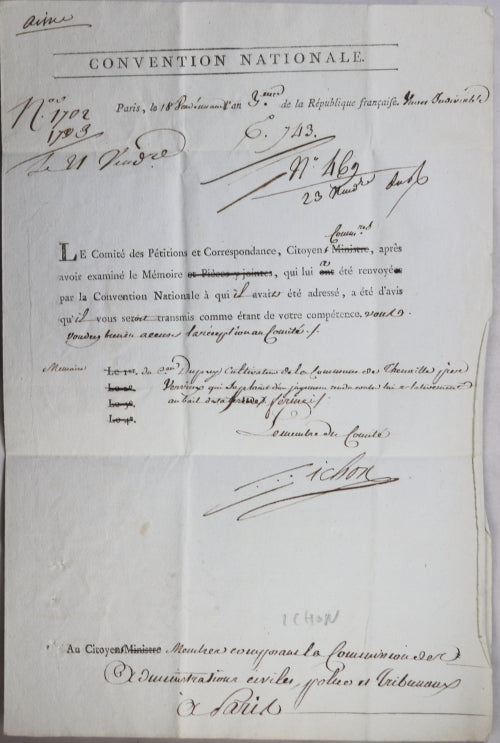 aisne
CONVENTION NATIONALE.
Nos. 1702
1703
Paris, le 18 Vendémiaire l'an 3.eme de la République française. Une et Indivisible
C. 743.
Le 21 Vendre
N° 469
23 Vendre
Comm.res
LE Comité des Pétitions et Correspondance, Citoyens Ministre, après
avoir examiné le Mémoire et Pièces y jointes, qui lui a ont été renvoyé
par la Convention Nationale à qui il avait été adressé, a été d'avis
qu'il vous seroit transmis comme étant de votre compétence. vous
voudrez bien en accuser la réception au Comité.
Memoire Le 1er. du Cen Dupuy Cultivateur de la Commune de Theuville près
Le 2e. Vervins qui se plaint d'un jugement rendu contre lui relativement
Le 3e. au bail
Le 4e.
Le membre du Comité
Ichon
ICHON
Au Citoyens Ministre Membres composant la Commission des
Administrations civiles, police et Tribunaux
à Paris